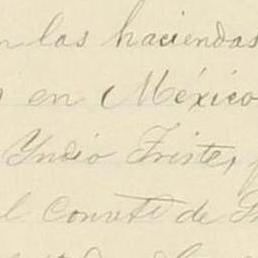 n las haciendas
en México
Yndio Triste,
el Convto de